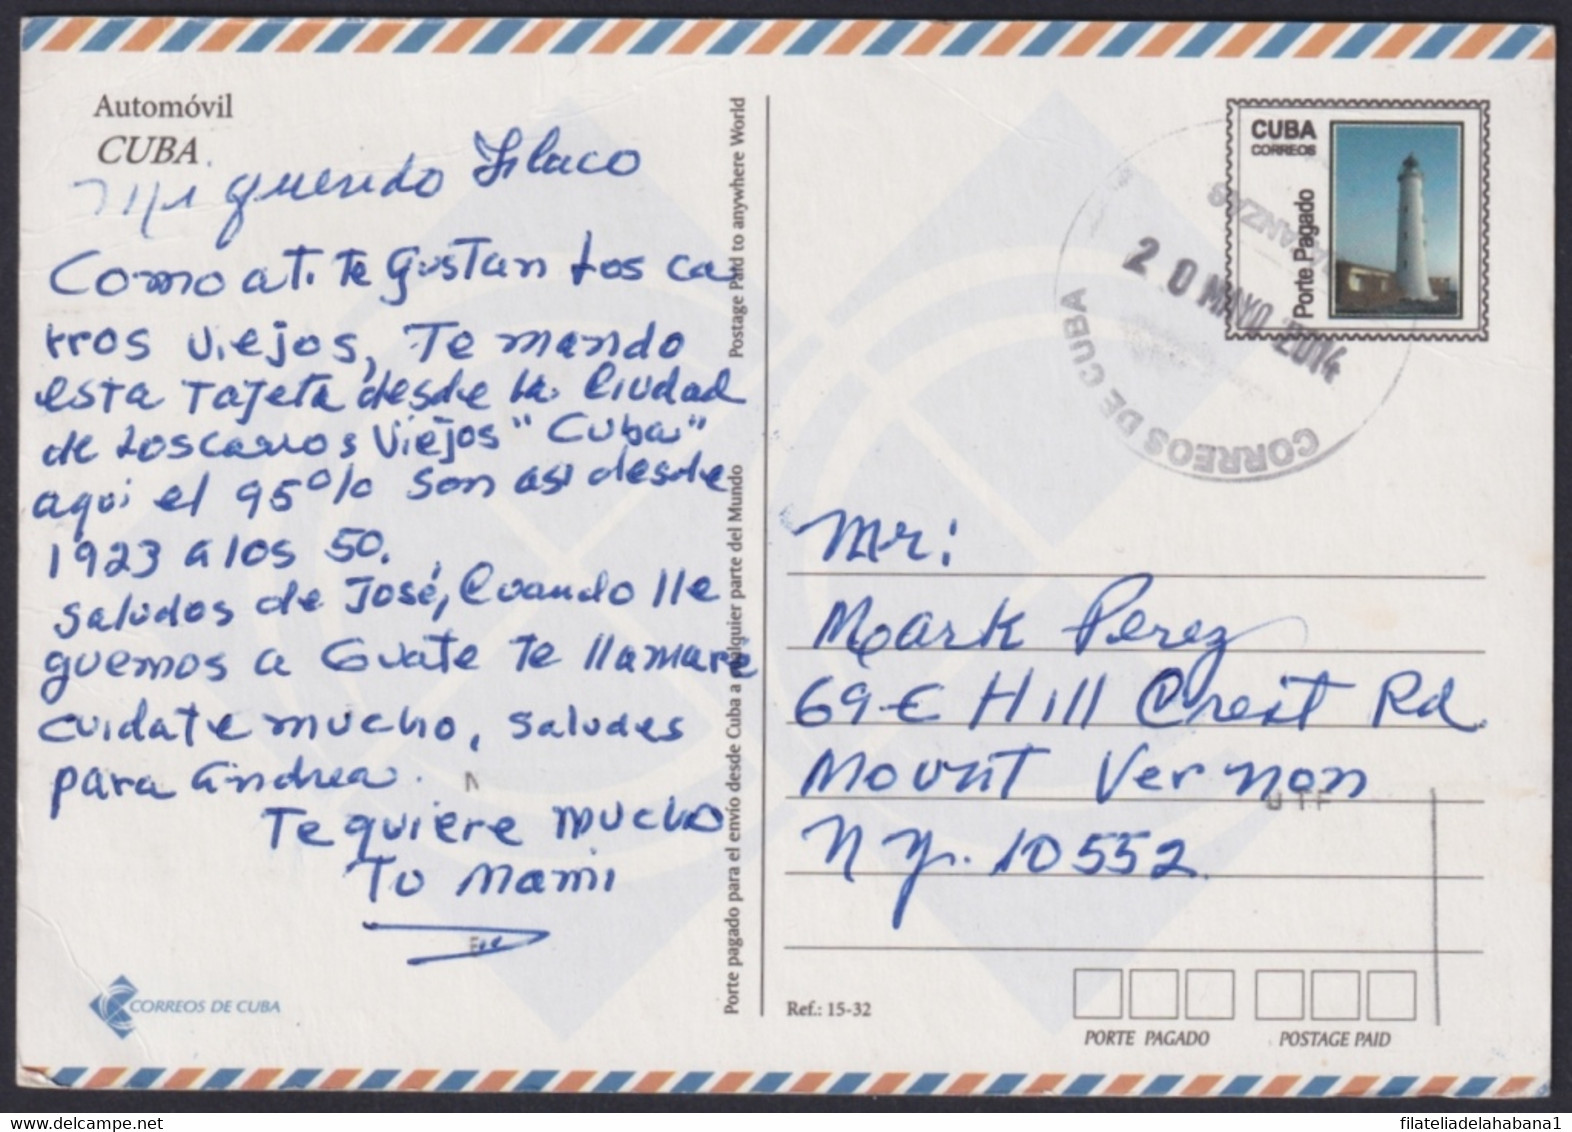 Automóvil
CUBA
Mi querido
Como a ti te Gustan Los ca
rros viejos, Te mando
esta Tajeta desde la Ciudad
de Los carros Viejos "Cuba"
aqui el 95% son asi desde
1923 a los 50.
saludos de José, Cuando lle
guemos a Guate te llamare
cuidate mucho, saludes
para Andrea.
Te quiere mucho
Tu Mami
CORREOS DE CUBA
Postage Paid to anywhere World
Porte pagado para el envío desde Cuba a cualquier parte del Mundo
CUBA
CORREOS
Porte Pagado
MATANZAS
20 MAYO 2014
CORREOS DE CUBA
Mr:
Mark Perez
69 E Hill Crest Rd
Mount Vernon
N.Y. 10552
Ref.: 15-32
PORTE PAGADO
POSTAGE PAID
filateliadelahabana1